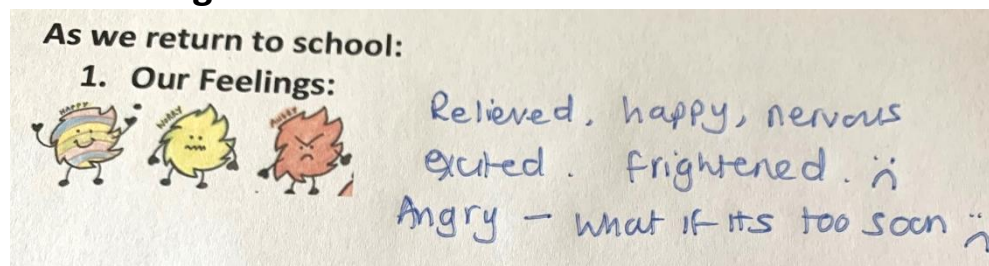 As we return to school:
1. Our Feelings:
HAPPY
WORRY
ANGRY
Relieved, happy, nervous
excited. frightened. :(
Angry – what if its too soon :(